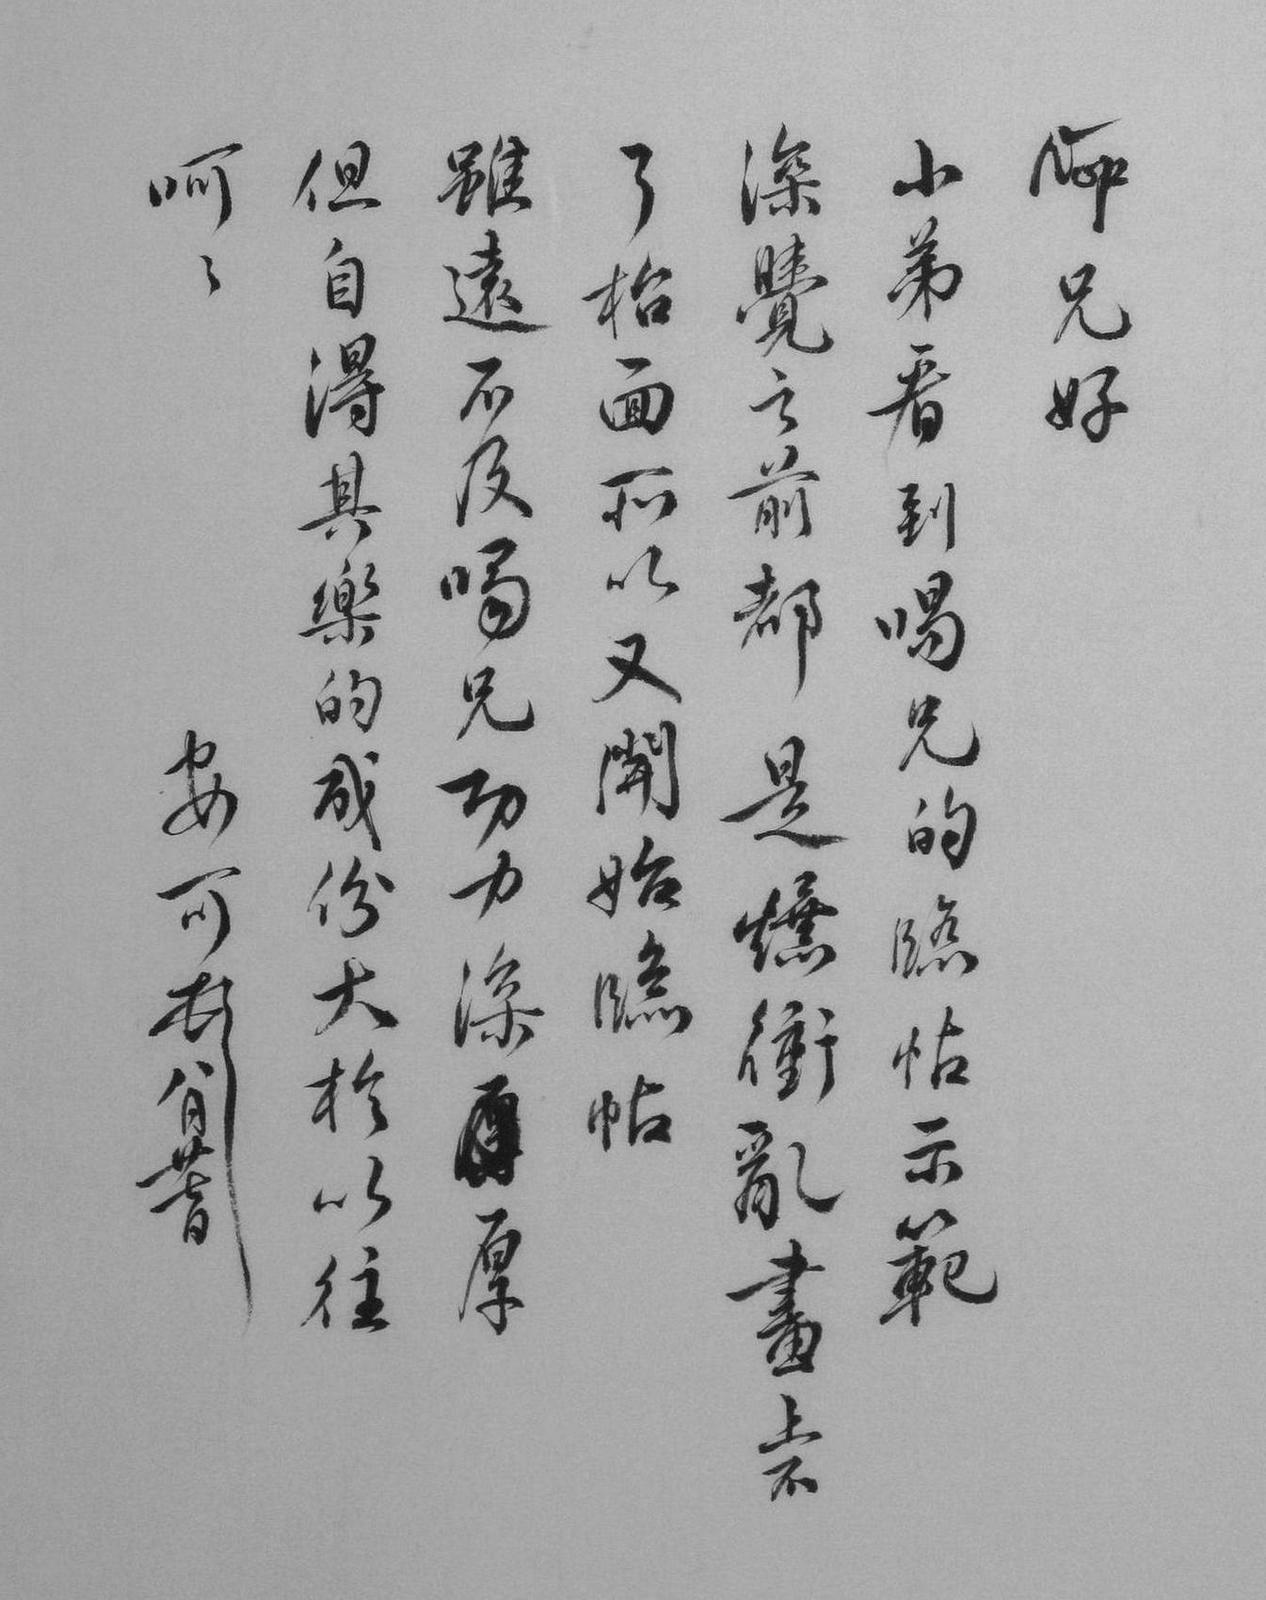 師兄好
小弟看到喝兄的臨帖示範
深覺之前都是爆衝亂畫上不
了枱面所以又開始臨帖
雖遠不及喝兄功力深厚
但自得其樂的成份大於以往
呵呵
安可